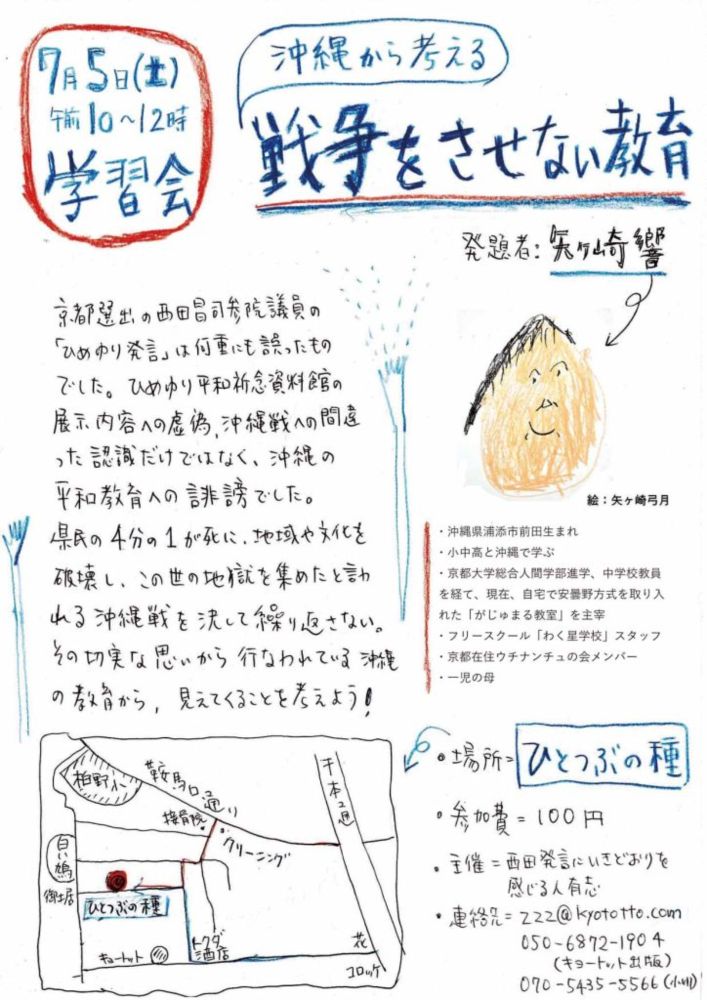 7月5日(土)
午前10〜12時
学習会
沖縄から考える
戦争をさせない教育
発題者：矢ヶ崎響
京都選出の西田昌司参院議員の
「ひめゆり発言」は何重にも誤ったもの
でした。ひめゆり平和祈念資料館の
展示内容への虚偽、沖縄戦への間違
った認識だけではなく、沖縄の
平和教育への誹謗でした。
県民の4分の1が死に、地域や文化を
破壊し、この世の地獄を集めたと言わ
れる沖縄戦を決して繰り返さない。
その切実な思いから行なわれている沖縄
の教育から、見えてくることを考えよう！
絵：矢ヶ崎弓月
・沖縄県浦添市前田生まれ
・小中高と沖縄で学ぶ
・京都大学総合人間学部進学、中学校教員
を経て、現在、自宅で安曇野方式を取り入
れた「がじゅまる教室」を主宰
・フリースクール「わく星学校」スタッフ
・京都在住ウチナンチュの会メンバー
・一児の母
・場所＝ひとつぶの種
・参加費＝100円
・主催＝西田発言にいきどおりを
感じる人有志
・連絡先＝zzz@kyototto.com
050-6872-1904
(キョートット出版)
070-5435-5566(小川)
柏野小
鞍馬口通り
千本通
接骨院
クリーニング
白い鳩
御土居
ひとつぶの種
キョートット
トクダ酒店
花
コロッケ